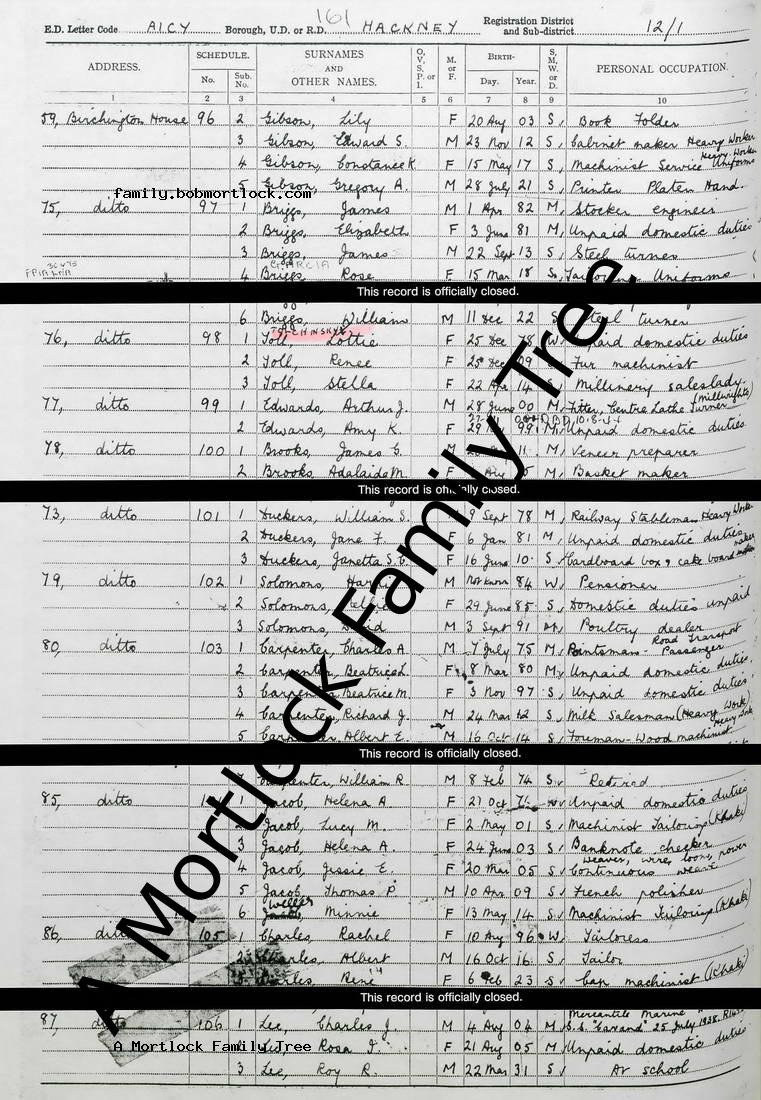 161
E.D. Letter Code AICY Borough, U.D. or R.D. HACKNEY Registration District and Sub-district 12/1
ADDRESS. SCHEDULE. No. Sub. No. SURNAMES AND OTHER NAMES. O, V, S, P, or I. M. or F. BIRTH- Day. Year. S, M, W, or D. PERSONAL OCCUPATION.
1 2 3 4 5 6 7 8 9 10
59, Birchington House 96 2 Gibson, Lily F 20 Aug 03 S, Book Folder
3 Gibson, Edward S. M 23 Nov 12 S, Cabinet maker Heavy Worker
4 Gibson, Constance K F 15 May 17 S, Machinist Service Uniforms Heavy Worker
5 Gibson, Gregory A. M 28 July 21 S, Printer Platen Hand.
family.bobmortlock.com
75, ditto 97 1 Briggs, James M 1 Apr 82 M, Stocker engineer
2 Briggs, Elizabeth F 3 June 81 M, Unpaid domestic duties
3 Briggs, James M 22 Sept 13 S, Steel turner
GARCIA
4 Briggs, Rose F 15 Mar 18 S, Tailoring Uniforms
This record is officially closed.
6 Briggs, William M 11 Dec 22 S, Steel turner
76, ditto 98 1 Toll, Lottie F 25 Dec 78 W, Unpaid domestic duties
2 Toll, Renee F 25 Dec 09 Fur machinist
3 Toll, Stella F 22 Apr 14 S, Millinery saleslady
77, ditto 99 1 Edwards, Arthur J. M 28 June 00 M, Fitter, Centre Lathe Turner (millwrights)
2 Edwards, Amy K. F 29 99 M, Unpaid domestic duties
78, ditto 100 1 Brooks, James G. M 11 M, Veneer preparer
2 Brooks, Adalaide M. F Aug M, Basket maker
This record is officially closed.
73, ditto 101 1 Duckers, William S. 9 Sept 78 M, Railway Stableman Heavy Worker
2 Duckers, Jane F. F 6 Jan 81 M, Unpaid domestic duties
3 Duckers, Janetta S. E. F 16 June 10 S, Cardboard box & cake board maker
79, ditto 102 1 Solomons, M Not known 84 W, Pensioner
2 Solomons, F 29 June 85 S, Domestic duties unpaid
3 Solomons, David M 3 Sept 91 Poultry dealer
80, ditto 103 1 Carpenter, Charles A. M 7 July 75 M, Pointsman - Road Transport Passenger
2 Carpenter, Beatrice L. F 8 Mar 80 M, Unpaid domestic duties
3 Carpenter, Beatrice M. F 3 Nov 97 S, Unpaid domestic duties
4 Carpenter, Richard J. M 24 Mar 12 S, Milk Salesman (Heavy Work)
5 Carpenter, Albert E. M 16 Oct 14 S, Foreman-Wood machinist Heavy Work
This record is officially closed.
7 Carpenter, William R M 8 Feb 74 S, Retired
85, ditto 1 Jacob, Helena A F 27 Oct Unpaid domestic duties
2 Jacob, Lucy M. F 2 May 01 S, Machinist Tailoring (Khaki)
3 Jacob, Helena A. F 24 June 03 S, Banknote checker
4 Jacob, Jessie E. F 20 Mar 05 S, Continuous weaver, wire, loom, power
5 Jacob, Thomas P M 10 Apr 09 S, French polisher
weller
6 Jacob, Minnie F 13 May 14 S, Machinist Tailoring (Khaki)
86, ditto 105 1 Charles, Rachel F 10 Aug 96 W, Tailoress
2 Charles, Albert M 16 Oct 16 S, Tailor
3 Charles, Rene F 6 Feb 23 S, Cap machinist (Khaki)
This record is officially closed.
87, ditto 106 1 Lee, Charles J. M 4 Aug 04 M, Mercantile Marine S.S. 25 July 1938.
2 Lee, Rosa I. F 21 Aug 05 M, Unpaid domestic duties
3 Lee, Roy R. M 22 Mar 31 S, At school
A Mortlock Family Tree
A Mortlock Family Tree